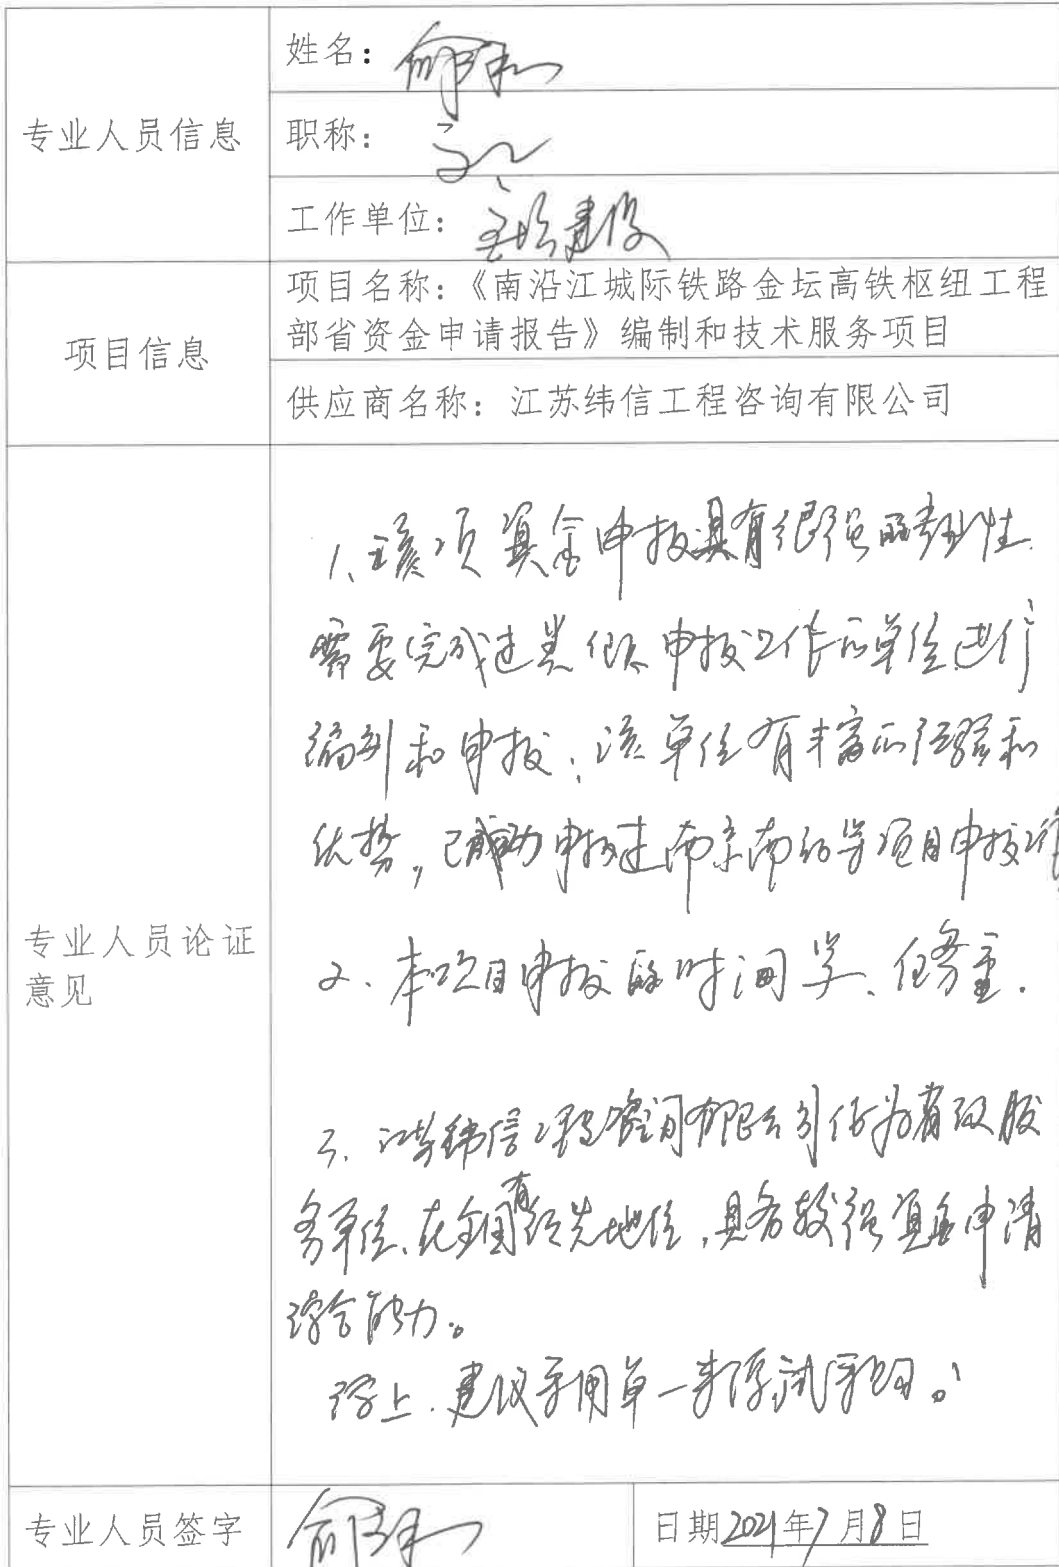 姓名：
专业人员信息
职称：高工
工作单位：金坛建设
项目名称：《南沿江城际铁路金坛高铁枢纽工程
部省资金申请报告》编制和技术服务项目
项目信息
供应商名称：江苏纬信工程咨询有限公司
1、该项资金申报具有很强的专业性
需要完成过类似申报工作的单位进行
编制和申报，该单位有丰富的经验和
优势，已成功申报过南京南站等项目申报工作
专业人员论证
意见
2、本项目申报的时间紧、任务重.
3、江苏纬信工程咨询有限公司作为 服
务单位、在全国有领先地位，具备较强资金申请
综合能力。
综上.建议采用单一来源式采购。
专业人员签字
日期2021年7月8日